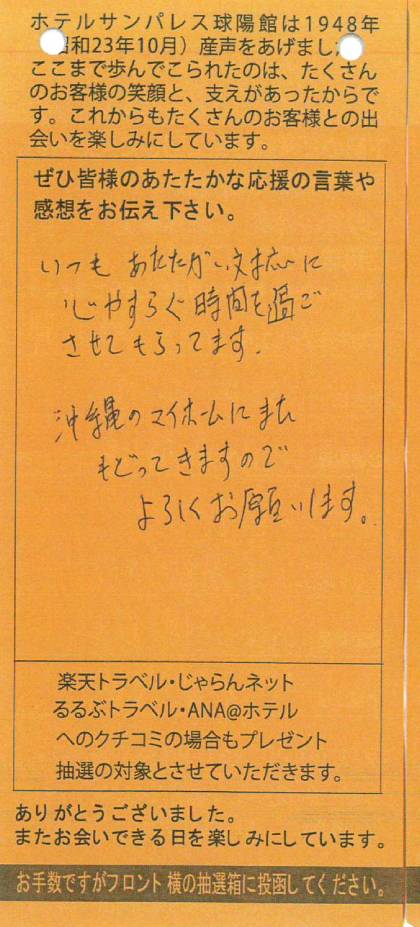 ホテルサンパレス球陽館は1948年
昭和23年10月）産声をあげました
ここまで歩んでこられたのは、たくさん
のお客様の笑顔と、支えがあったからで
す。これからもたくさんのお客様との出
会いを楽しみにしています。
ぜひ皆様のあたたかな応援の言葉や
感想をお伝え下さい。
いつも あたたかい対応に
心やすらぐ時間を過ご
させてもらってます。
沖縄のマイホームにまた
もどってきますので
よろしくお願いします。
楽天トラベル・じゃらんネット
るるぶトラベル・ANA@ホテル
へのクチコミの場合もプレゼント
抽選の対象とさせていただきます。
ありがとうございました。
またお会いできる日を楽しみにしています。
お手数ですがフロント 横の抽選箱に投函してください。